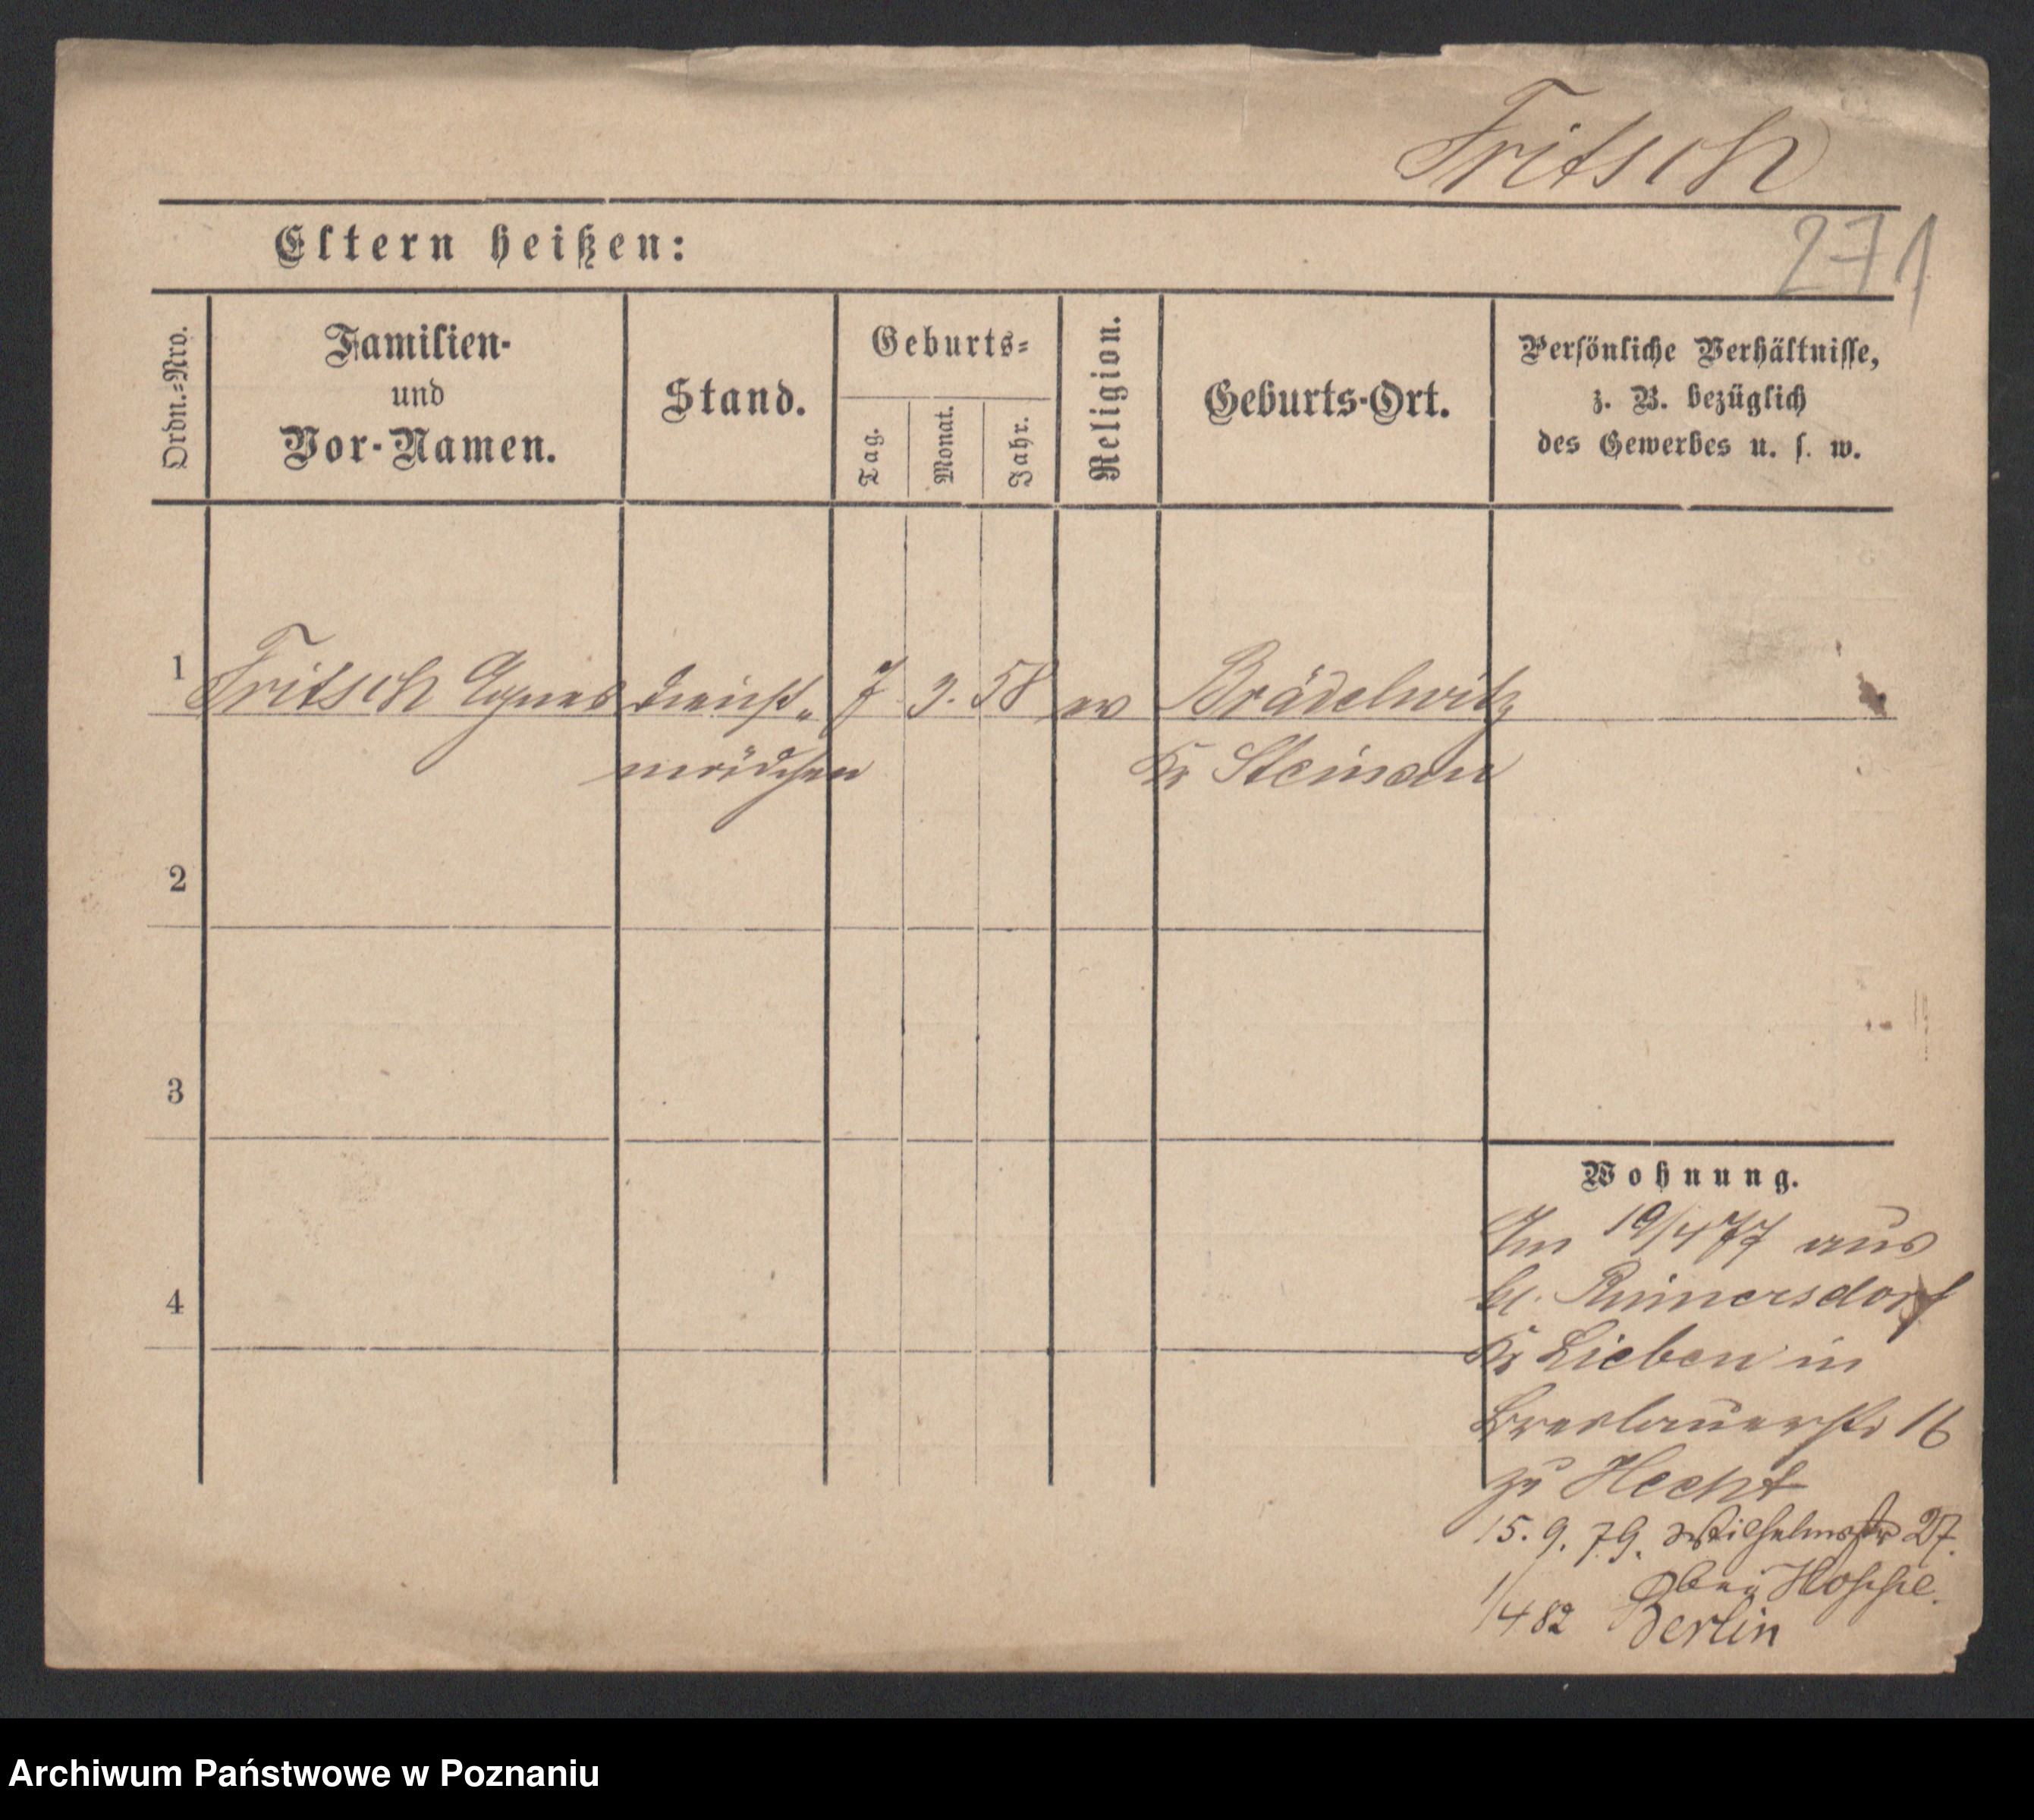 Fritsch
271
Eltern heißen:
Ordn.=Nro.
Familien-
und
Vor-Namen.
Stand.
Geburts=
Tag.
Monat.
Jahr.
Religion.
Geburts-Ort.
Persönliche Verhältnisse,
z. B. bezüglich
des Gewerbes u. s. w.
1 Fritsch Agnes Dienst„ 7 3. 58 ev Brädelwitz
mädchen Kr Steinau
2
3
4
Wohnung.
Am 19/4 77 aus
kl. Rinnersdorf
Kr Lieben in
Breslauerstr 16
zu Hecht
15. 9. 79. Wilhelmstr 27.
bei Hoppe.
1/4 82 Berlin
Archiwum Państwowe w Poznaniu